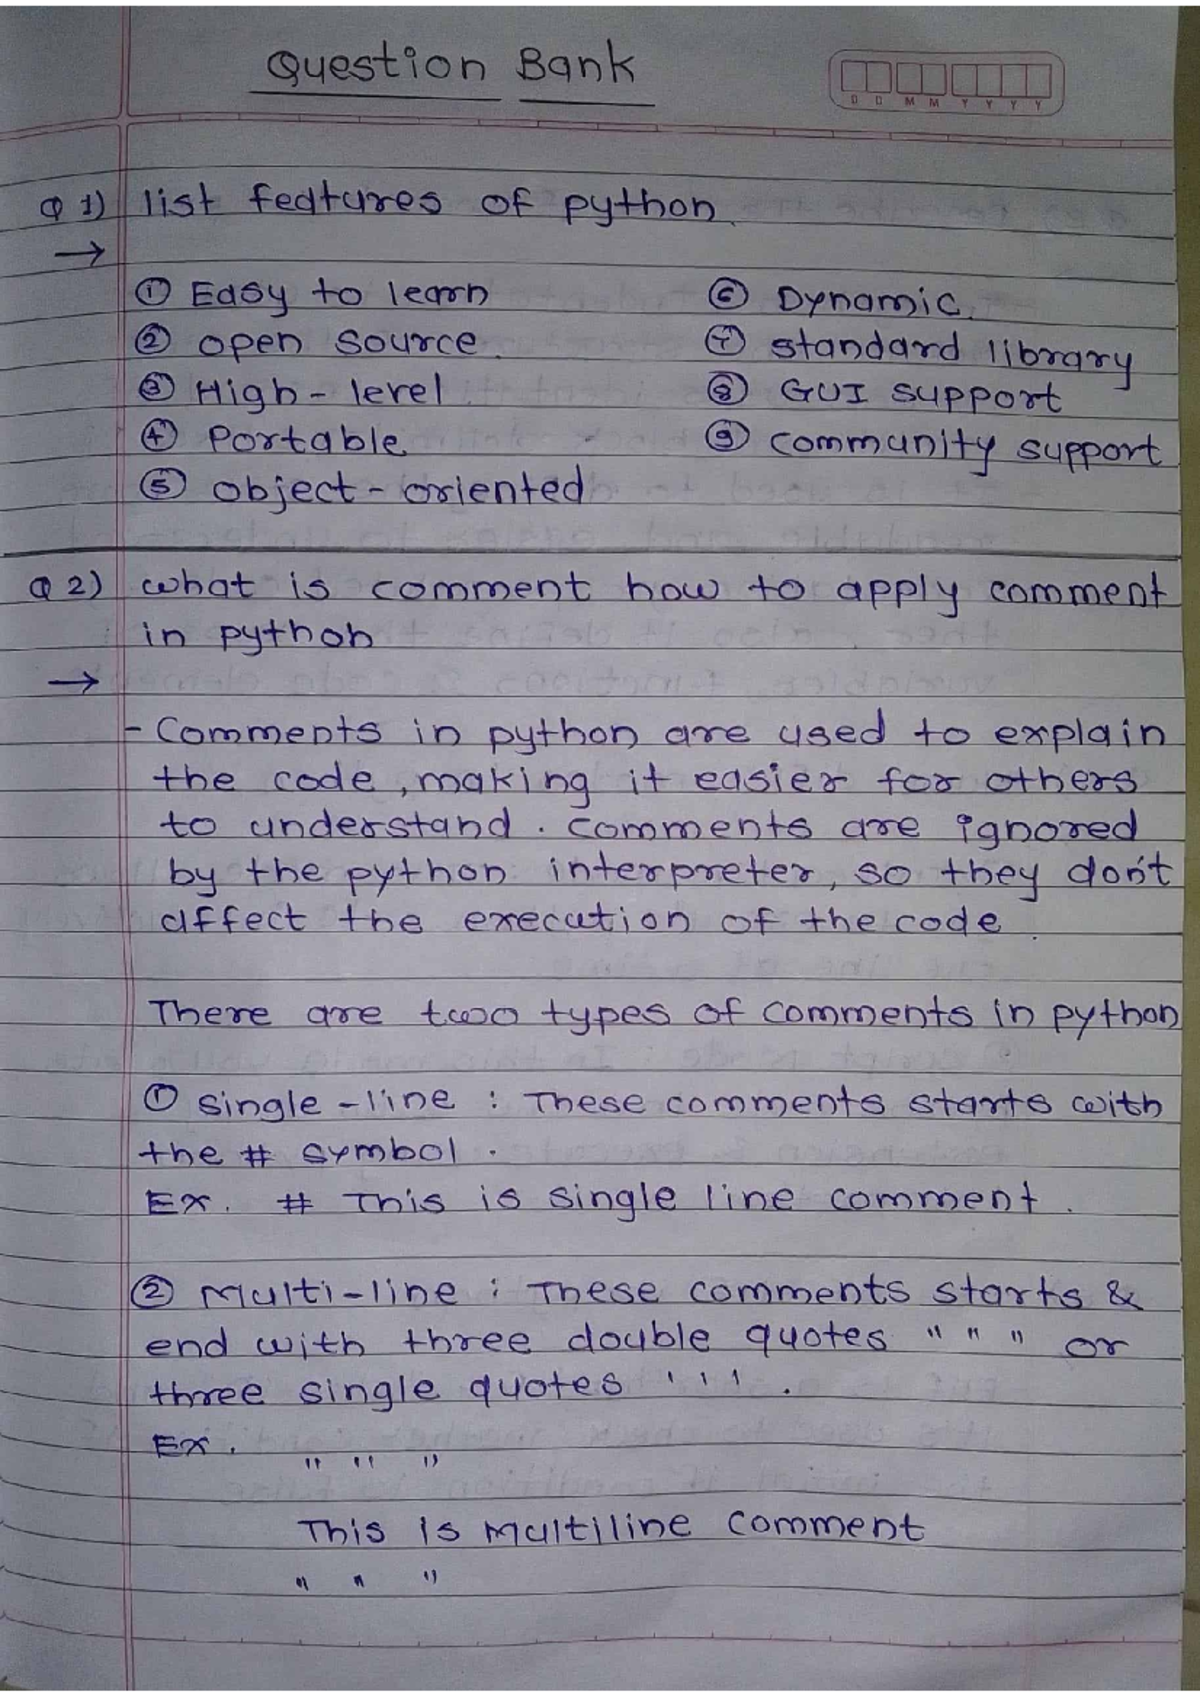 Question Bank
D D M M Y Y Y Y
Q 1) list features of python.
→
① Easy to learn
② open source.
③ High-level
④ Portable
⑤ object-oriented
⑥ Dynamic.
⑦ standard library
⑧ GUI support
⑨ community support
Q 2) what is comment how to apply comment
in python
→
- Comments in python are used to explain
the code, making it easier for others
to understand. comments are ignored
by the python interpreter, so they don't
affect the execution of the code.
There are two types of comments in python
① single-line : These comments starts with
the # symbol.
Ex. # This is single line comment.
② Multi-line : These comments starts &
end with three double quotes " " " or
three single quotes ' ' '.
Ex. " " "
This is Multiline comment
" " "